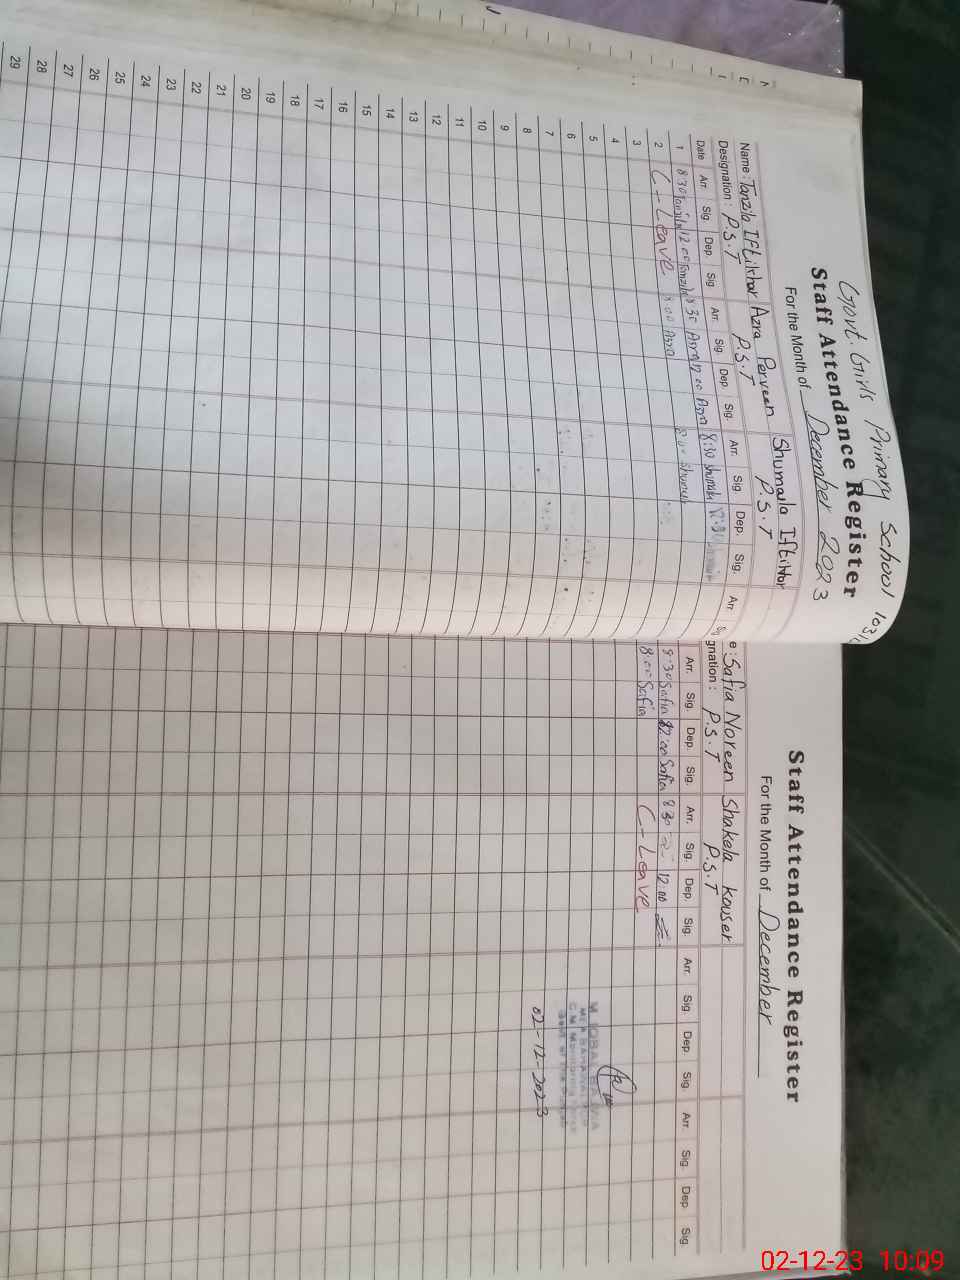 Govt. Girls Primary School
Staff Attendance Register
For the Month of December 2023
Name: Tanzila Iftikhar Azra Perveen Shumaila Iftikhar
Designation: P.S.T P.S.T P.S.T
Date Arr. Sig. Dep. Sig. Arr. Sig. Dep. Sig. Arr. Sig. Dep. Sig. Arr
1 8:30 Tanzila 12:00 Tanzila 8:30 Azra 12:00 Azra 8:30 Shumaila
2 C-Leave 8:00 Azra 8:00
3
4
5
6
7
8
9
10
11
12
13
14
15
16
17
18
19
20
21
22
23
24
25
26
27
28
29
Staff Attendance Register
For the Month of December
e: Safia Noreen Shakela Kouser
gnation: P.S.T P.S.T
Arr. Sig. Dep. Sig. Arr. Sig. Dep. Sig. Arr. Sig. Dep. Sig. Arr. Sig. Dep. Sig.
8:30 Safia 12:00 Safia 8:30 12:00
8:00 Safia C-Leave
02-12-2023
02-12-23 10:09